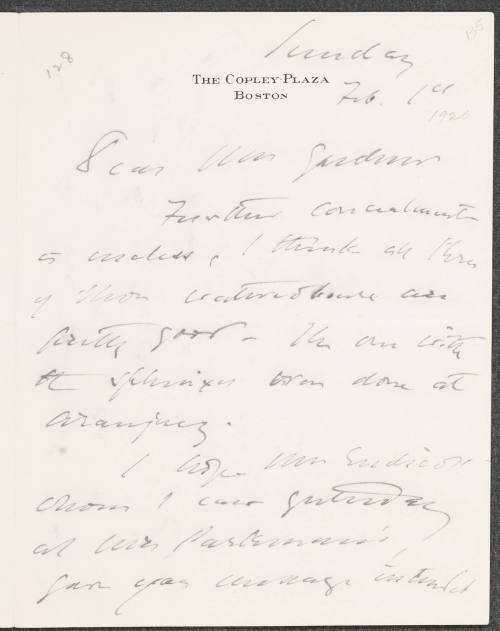 128
135
Sunday
THE COPLEY-PLAZA
BOSTON
Feb. 1st
1920
Dear Mrs Gardner
Further concealment
is useless, I think all three
of those watercolours are
pretty good - the one with
the sphinxes was done at
Aranjuez.
I hope Mrs Endicott
whom I saw yesterday
at Mrs Parkman's
gave you message intended